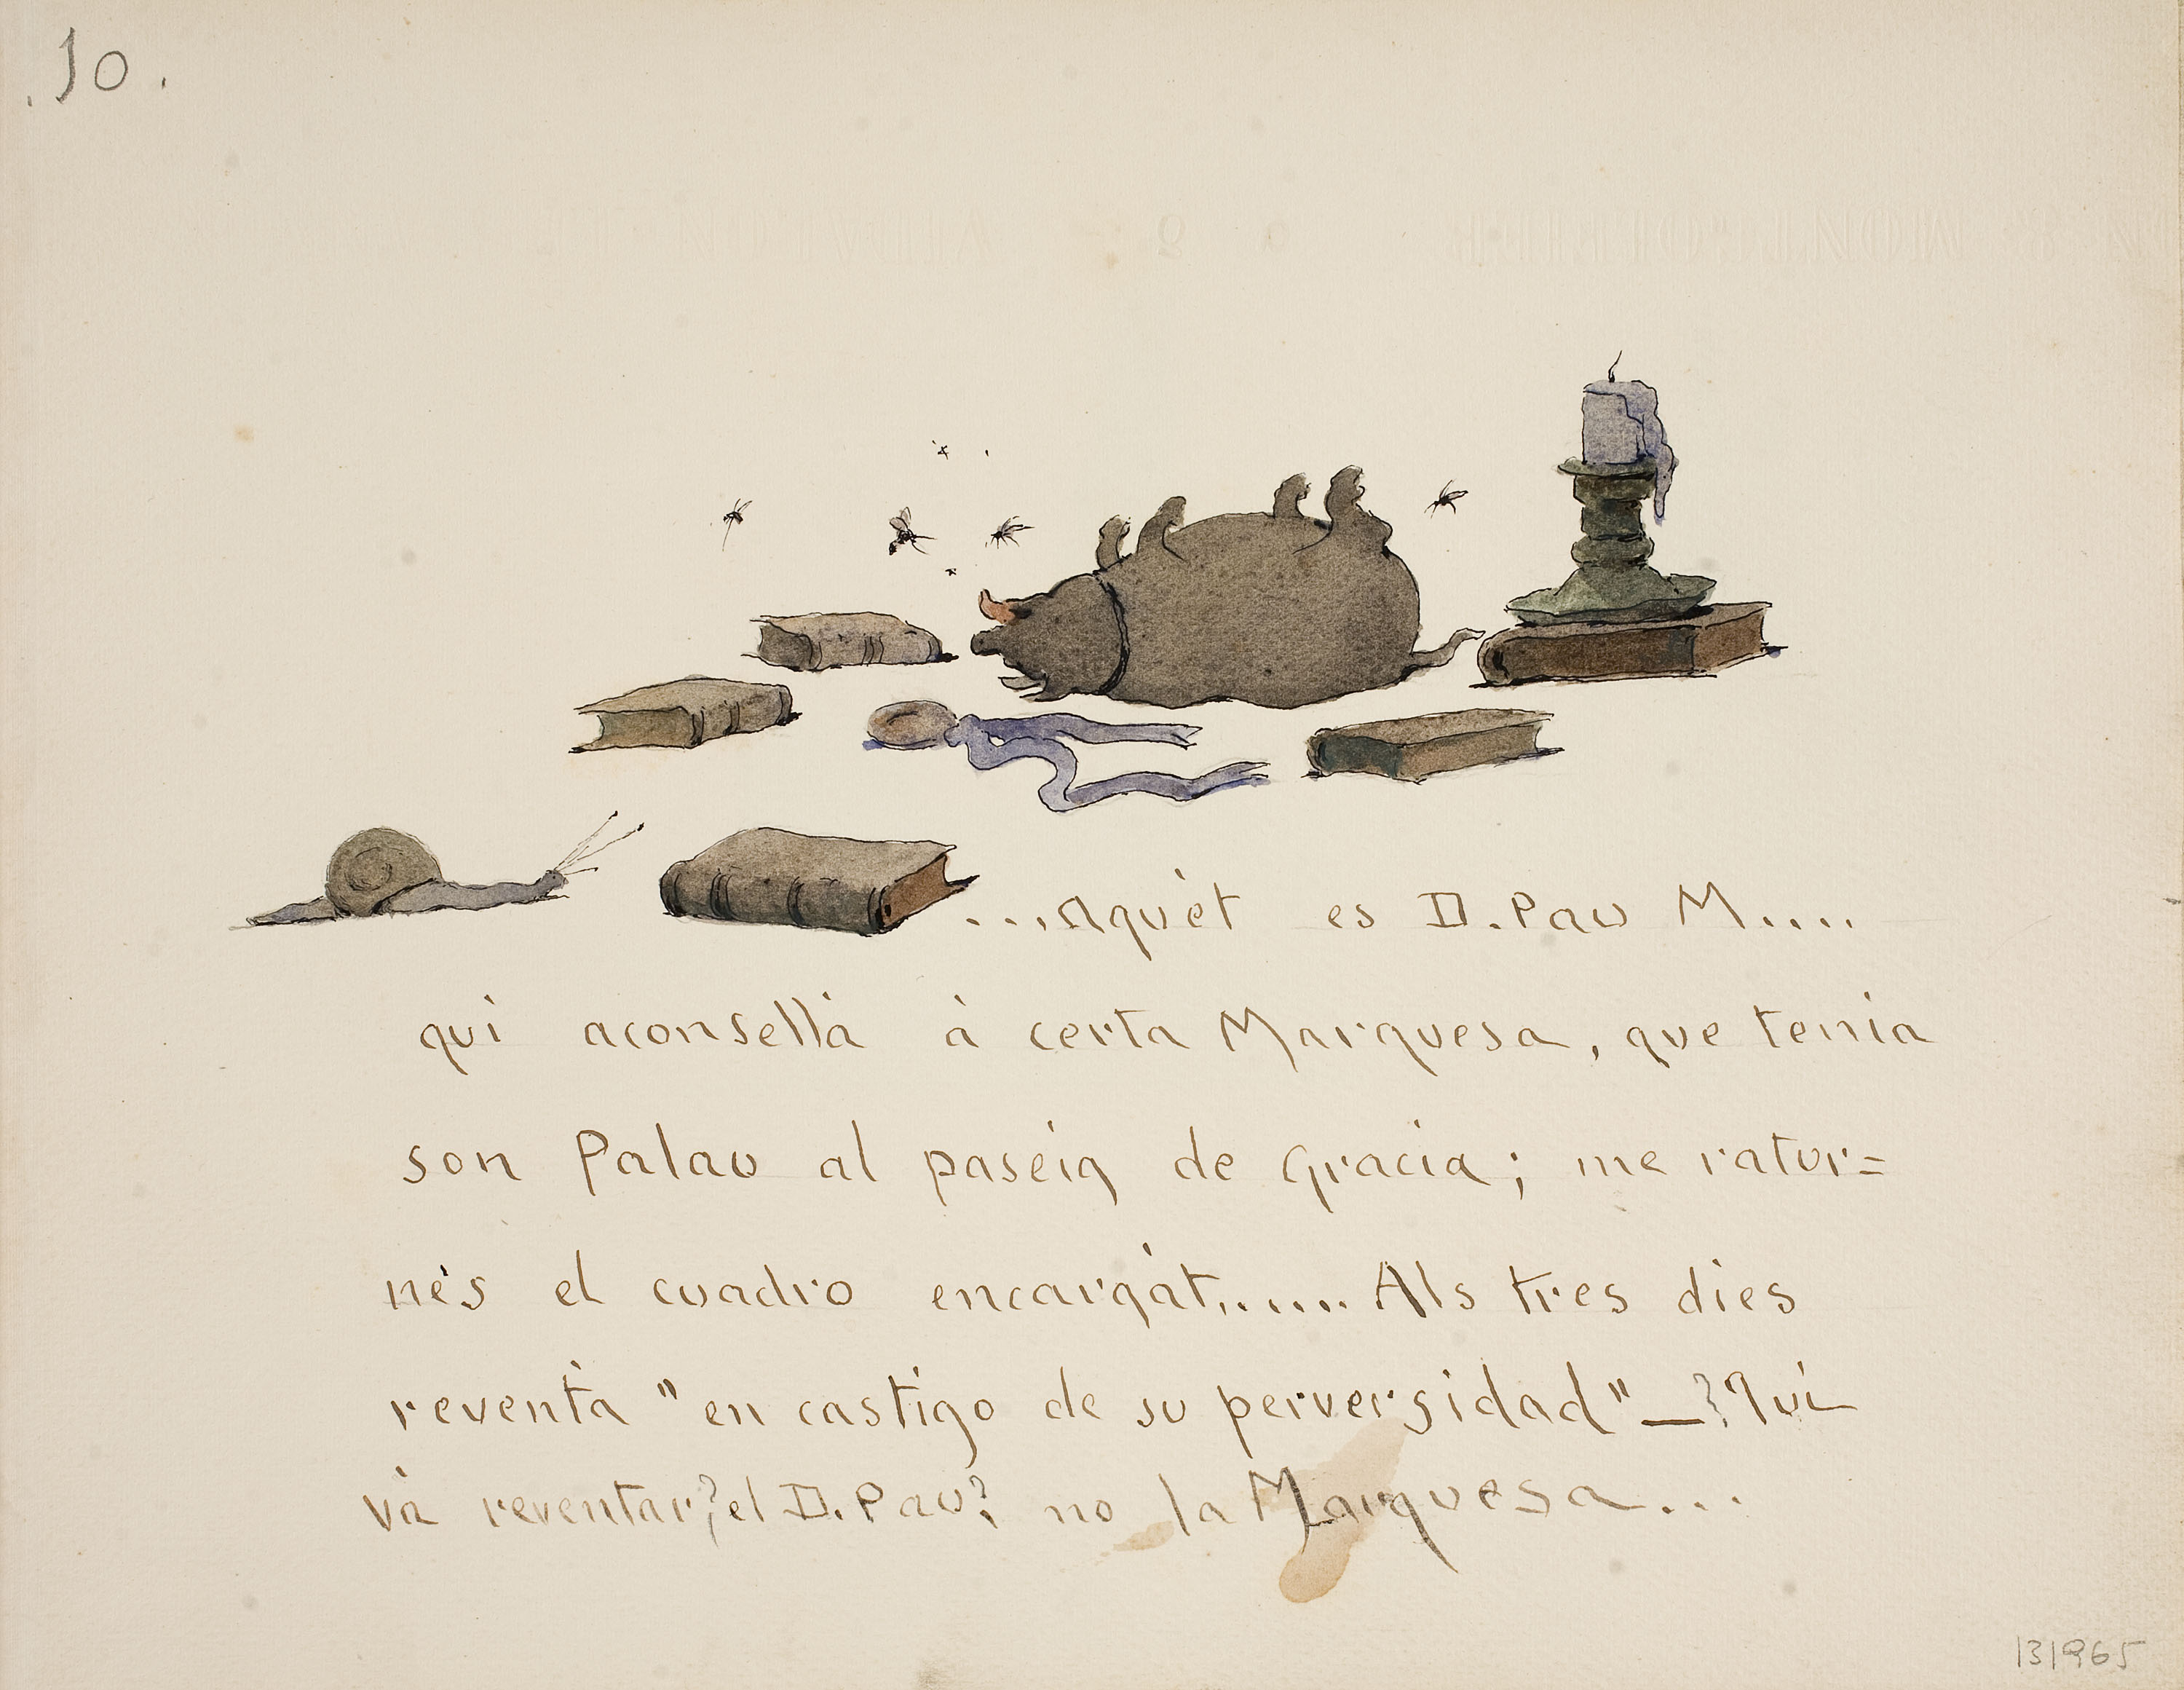 .10.
...Aquèt es D. Pau M....
qui aconsellà à certa Marquesa, que tenia
son Palau al paseig de Gracia; me rator=
nés el cuadro encargát....... Als tres dies
reventà "en castigo de su perversidad"—?Qui
và reventar? el D. Pau? no la Marquesa...
131965